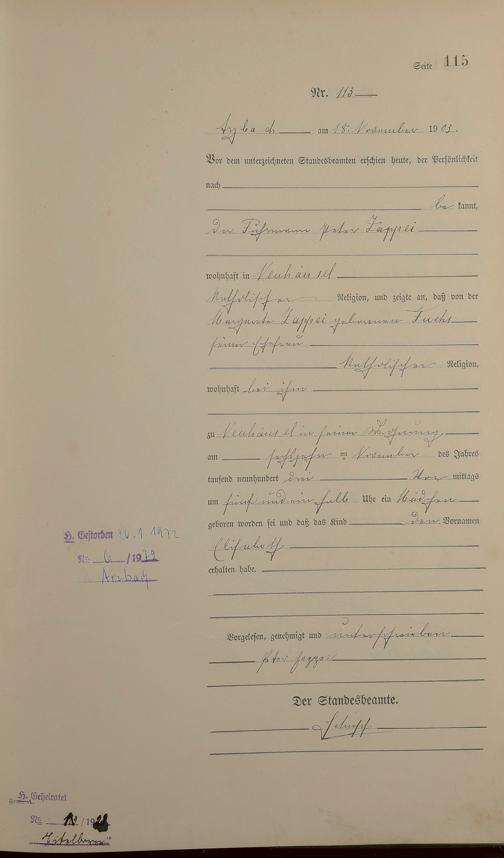 Seite 115
Nr. 113
am 18. November 1903.
Vor dem unterzeichneten Standesbeamten erschien heute, der Persönlichkeit
nach
be kannt,
der Fuhrmann Peter Zappei
wohnhaft in Neuhäusel
katholischer Religion, und zeigte an, daß von der
Margarete Zappei geborenen Fuchs
seiner Ehefrau
katholischer Religion,
wohnhaft bei ihm
zu Neuhäusel in seiner Wohnung
am sechzehn ten November des Jahres
tausend neunhundert drei Vor mittags
um fünf und ein halb Uhr ein Mädchen
geboren worden sei und daß das Kind den Vornamen
Elisabeth
erhalten habe.
H. Gestorben 26.1.1972
Nr. 6 /1972
Arzbach
Vorgelesen, genehmigt und unterschrieben
Peter Zappei
Der Standesbeamte.
H. Geheiratet
Nr.